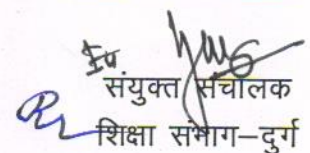 संयुक्त संचालक
शिक्षा संभाग–दुर्ग